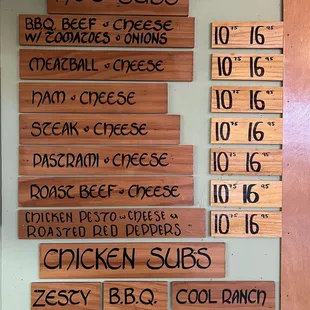 HOT SUBS
B.B.Q. BEEF & CHEESE
W/ TOMATOES & ONIONS
10⁷⁵ 16⁹⁵
MEATBALL & CHEESE
10⁷⁵ 16⁹⁵
HAM & CHEESE
10⁷⁵ 16⁹⁵
STEAK & CHEESE
10⁷⁵ 16⁹⁵
PASTRAMI & CHEESE
10⁷⁵ 16⁹⁵
ROAST BEEF & CHEESE
10⁷⁵ 16⁹⁵
CHICKEN PESTO W/ CHEESE &
ROASTED RED PEPPERS
10⁷⁵ 16⁹⁵
CHICKEN SUBS
ZESTY
B.B.Q.
COOL RANCH